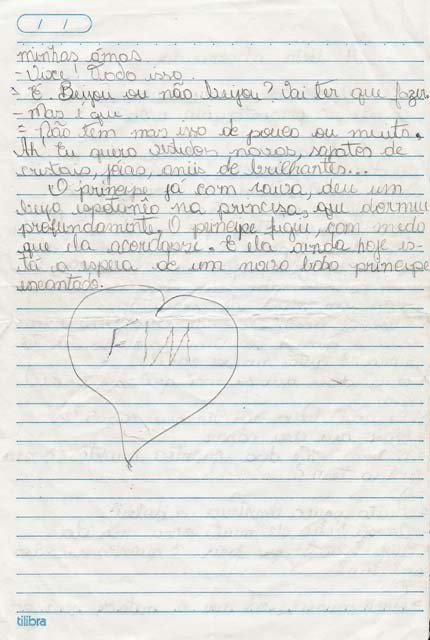 minhas ómas
- Você! Todo isso
- É. Beijou ou não beijou? Vai ter que fazer.
- Mas é que
- Não tem mas isso de pouco ou muito.
Ah! Eu quero vestidos novos, sapatos de
cristais, jóias, anéis de brilhantes...
O príncipe já com raiva, deu um
beijo na princesa, que dormiu
profundamente. O príncipe fugiu, com medo
que ela acordasse. E ela ainda hoje es-
tá a espera de um novo bobo príncipe
encantado.
FIM
tilibra